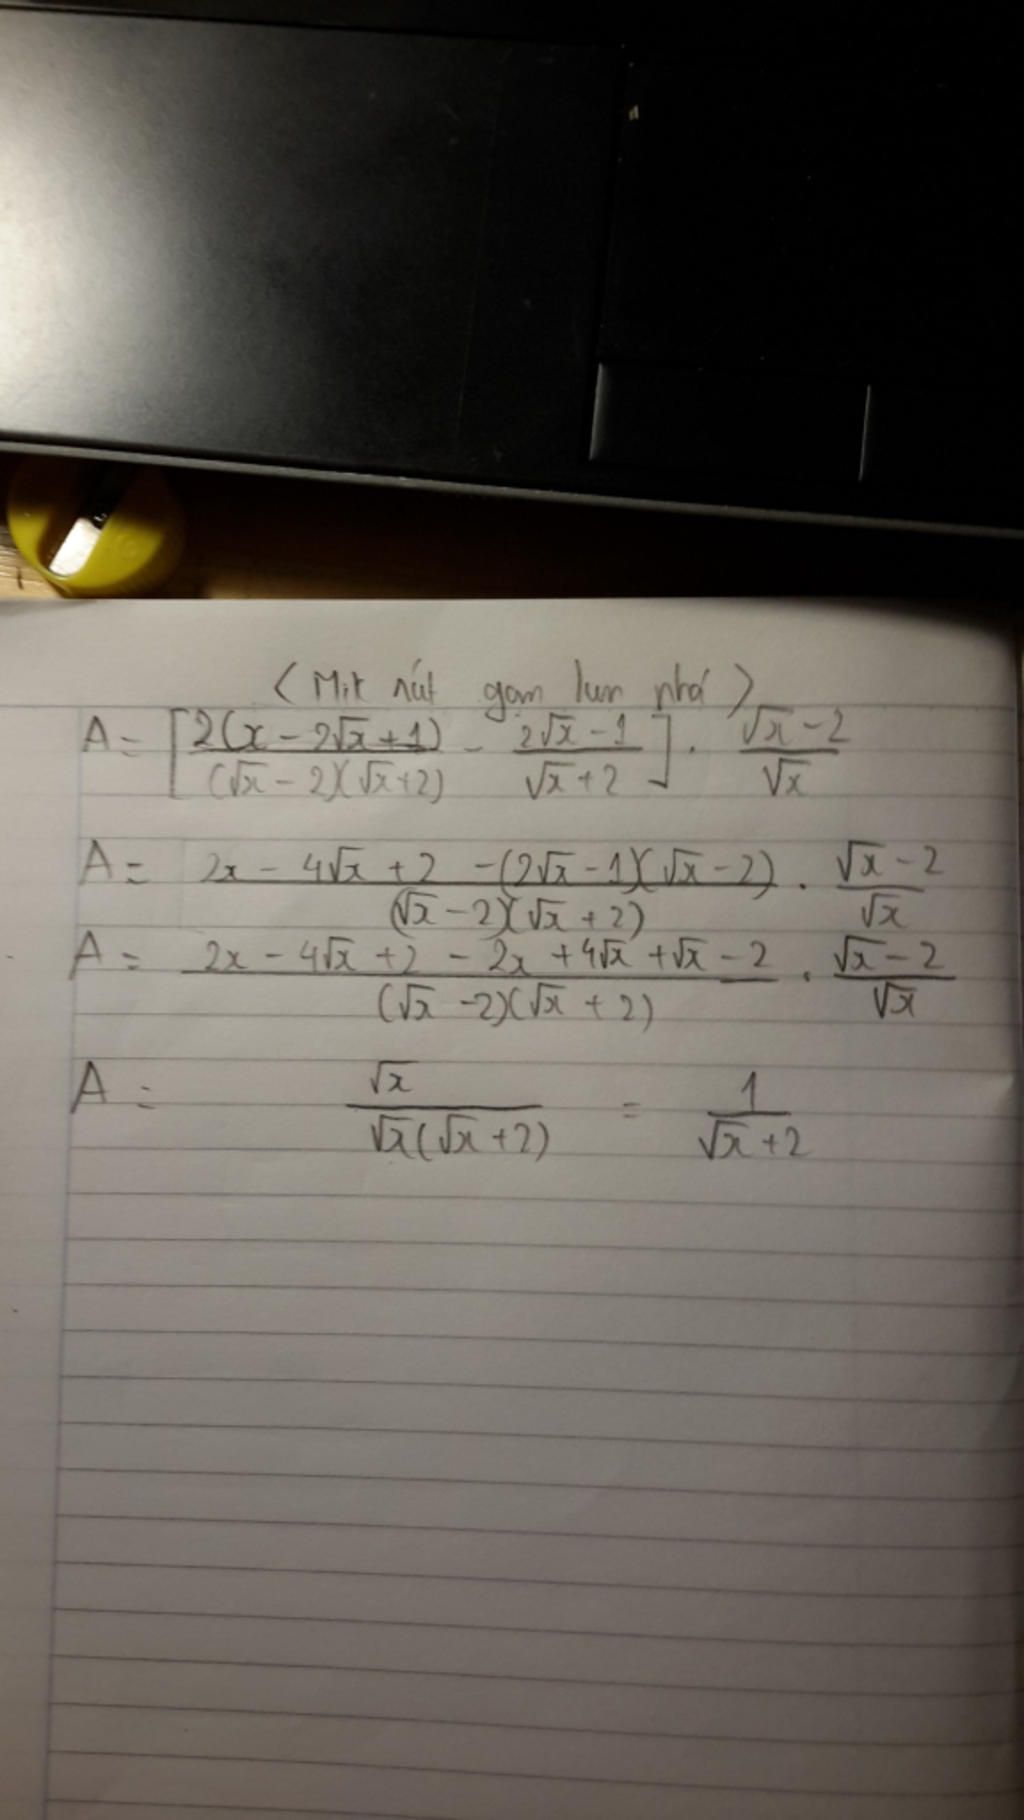 (Mik rút gọn lun nhá)
A = [2(x - 2√x + 1)/(√x - 2)(√x + 2) - 2√x - 1/√x + 2] . √x - 2/√x
A = 2x - 4√x + 2 - (2√x - 1)(√x - 2)/(√x - 2)(√x + 2) . √x - 2/√x
A = 2x - 4√x + 2 - 2x + 4√x + √x - 2/(√x - 2)(√x + 2) . √x - 2/√x
A = √x/√x(√x + 2) = 1/√x + 2